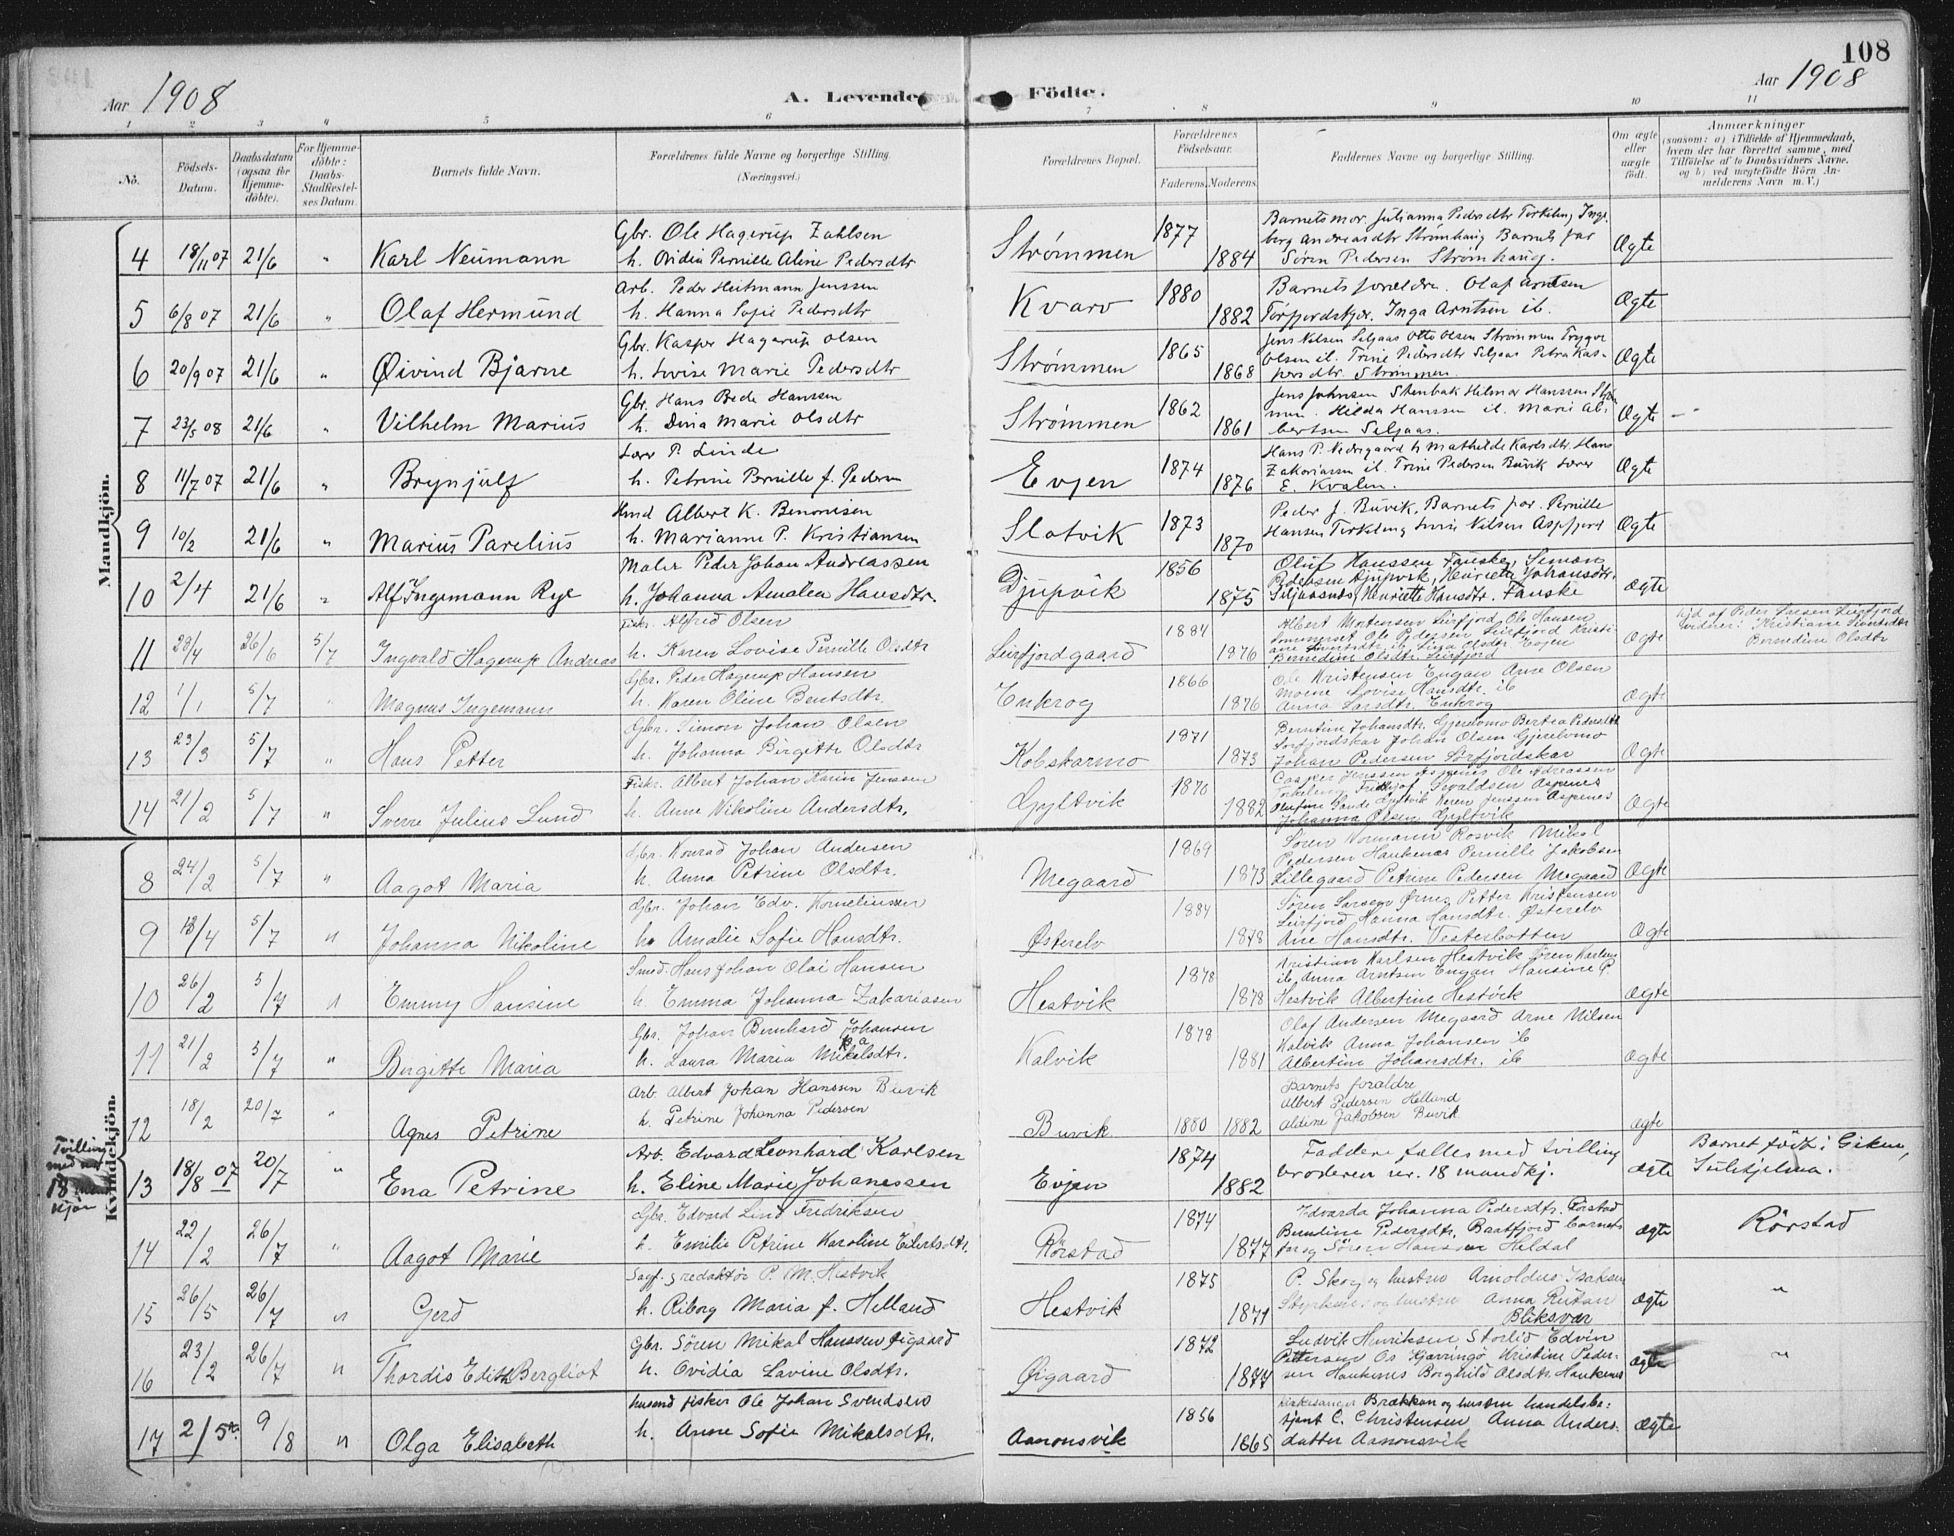 108
Aar 1908
A. Levende Födte.
Aar 1908
1 2 3 4 5 6 7 8 9 10 11
No.
Födsels-Datum.
Daabsdatum (ogsaa for Hjemme-döbte).
For Hjemme-döbte: Daabs-Stadfæstel-ses Datum.
Barnets fulde Navn.
Forældrenes fulde Navne og borgerlige Stilling. (Næringsvei.)
Forældrenes Bopæl.
Forældrenes Födselsaar.
Faderens. Moderens.
Faddernes Navne og borgerlige Stilling.
Om ægte eller uægte födt.
Anmærkninger
(saasom: a) i Tilfælde af Hjemmedaab, hvem der har forrettet samme, med Tilföielse af to Daabsvidners Navne, og b) ved uægtefödte Börn An-melderens Navn m. V.)
Mandkjön.
4 18/11 07 21/6 " Karl Neumann
Gbr. Ole Hagerup Zahlsen
h. Ovidia Pernille Aline Pedersdtr
Strømmen 1877 1884
Barnets mor. Julianna Pedersdtr Torkilsng Inge-
berg Andreasdtr Strømhaug Barnets far
Sören Pedersen Strømhaug. Ægte
5 6/8 07 21/6 " Olaf Hermund
Arb. Peder Heitmann Jenssen
h. Hanna Sofie Pedersdtr
Kvarv 1880 1882
Barnets forældre. Olaf Arntsen
Tørfjordskjær. Inga Arntsen ib. Ægte
6 20/9 07 21/6 " Øivind Bjarne
Gbr. Kasper Hagerup Olsen
h. Lovise Marie Pedersdtr
Strømmen 1865 1868
Jens Nilsen Seljaas Otto Olsen Strømmen Trygve
Olsen il. Trine Pedersdtr Seljaas Petra Kas-
persdtr. Strømmen. Ægte
7 23/5 08 21/6 " Vilhelm Marius
Gbr. Hans Bede Hanssen
h. Dina Marie Olsdtr
Strømmen 1862 1861
Jens Johnsen Stenbak Hilmar Hanssen Strøm-
men. Hilda Hanssen il. Marie Al-
bertsen Seljaas. Ægte —
8 11/7 07 21/6 " Brynjulf
Lærer P. Linde
h. Petrine Pernille f. Pedersen
Evjen 1874 1876
Hans P. Nedregaard h Mathilde Karlsdtr. Hans
Zakariassen il. Trine Pedersen Buvik Lærer
E. Kvalen. Ægte
9 10/2 21/6 " Marius Parelius
Hmd Albert K. Benonisen
h. Marianne P. Kristiansen
Slotvik 1873 1870
Peder J. Buvik, Barnets far. Pernille
Hansen Torkilsng Nilsen Aspfjord Ægte
10 2/4 21/6 " Alf Ingemann Rye
Maler Peder Johan Andreassen
h. Johanna Amalea Hansdtr.
Djupvik 1856 1875
Oluf Hanssen Fauske, Simon
Pedersen Djupvik, Henriette Johansdtr.
Siljuasnes, Henriette Hansdtr. Fauske ægte
11 28/4 26/6 5/7 Ingvald Hagerup Andreas
Fisk. Alfred Olsen
h. Karen Lovise Pernille Olsdtr
Leirfjordgaard 1884 1876
Albert Mortensen Leirfjord, Ole Hansen
Sommerset Ole Pedersen Leirfjord Kristi-
ane Sivertsdtr ib. Olsdtr Evjen
Berndine Olsdtr. Leirfjord Ægte
hjd af Peder Larsen Leirfjord
vidner: Kristiane Sivertsdtr
Berndine Olsdtr
12 1/1 5/7 " Magnus Ingemann
Gbr. Peder Hagerup Hansen
h. Karen Oline Bentsdtr.
Enkrog 1866 1876
Ole Kristensen Engan Arne Olsen
Moene Lovise Hansdtr. ib
Anna Larsdtr. Enkrog Ægte
13 23/3 5/7 " Hans Petter
Gbr. Simon Johan Olsen
h. Johanna Birgitte Olsdtr
Kobskarmo 1871 1873
Berntine Johansdtr. Gjerelvmo Bertea Pedersdtr
Sørfjordskar Johan Olsen Gjerelvmo
Johan Pedersen Sørfjordskar Ægte
14 21/2 5/7 " Sverre Julius Lund
Fisk. Albert Johan Karin Jenssen
h. Anne Nikoline Andersdtr.
Gyltvik 1870 1882
Casper Jenssen Aspenes Ole Adreassen
Torkilseng Fridtjof Osvaldsen Aspenes
Olufine Sande Gyltvik Karen Jenssen Aspenes
Johanna Olsen Gyltvik Ægte
Kvindekjön.
8 24/2 5/7 " Aagot Maria
Gbr. Konrad Johan Andersen
h. Anna Petrine Olsdtr.
Megaard 1869 1873
Søren Normann Rosvik Mikal
Pedersen Haukenæs Pernille Jakobsen
Lillegaard Petrine Pedersen Megaard Ægte
9 18/4 5/7 " Johanna Nikoline
Gbr. Johan Edv. Korneliussen
h. Amalie Sofie Hansdtr.
Østerelv 1884 1878
Søren Larsen Ørnes Petter Kristensen
Leirfjord Hanna Hansdtr. Østerelv
Ane Hansdtr. Vesterbotten Ægte
10 26/2 5/7 " Emmy Hansine
Smed. Hans Johan Olai Hansen
h. Emma Johanna Zakariasen
Hestvik 1878 1878
Kristian Karlsen Hestvik Søren Karlsen
ib. Anna Arntsen Engan Hansine P
Hestvik Albertine Hestvik Ægte
11 21/2 5/7 " Birgitte Maria
Gbr. Johan Bernhard Johansen
h. Laura Maria Mikalsdtr.
Kalvik 1878 1881
Olaf Andersen Megaard Arne Nilsen
Kalvik Anna Johansen ib
Albertine Johansdtr. ib Ægte
12 18/2 20/7 " Agnes Petrine
Arb. Albert Johan Hanssen Buvik
h. Petrine Johanna Pedersen
Buvik. 1880 1882
Barnets foraldre
Albert Pedersen Helland
Aldine Jakobsen Buvik ægte
Tvilling
med nr
18 man
kjøn
13 18/8 07 20/7 " Ena Petrine
Arb. Edvard Leonhard Karlsen
h. Eline Marie Johanessen
Evjen 1874 1882
Faddere fælles med tvilling
broderen nr. 18 mandkj. ægte
Barnet födt i Giken,
Sulitjelma.
14 22/2 26/7 " Aagot Marie
Gbr. Edvard Lind Fredriksen
h. Emilie Petrine Karoline Eilertsdtr.
Rørstad 1874 1877
Edvarda Johanna Pedersdtr. Rørstad
Berndine Pedersdtr. Bratfjord barnets
far og Søren Hanssen Heldal ægte
Rörstad
15 26/5 26/7 " Gerd
Sagf. & redaktør P. M. Hestvik
h. Riborg Maria f. Helland
Hestvik 1875 1871
P. Skog og hustru Arnoldus Isaksen
og hustru Anna Rutan
Bliksvær ægte "
16 23/2 26/7 " Thordis Edith Bergliot
Gbr. Søren Mikal Hanssen Øigaard
h. Ovidia Lavine Olsdtr.
Øigaard 1872 1877
Ludvik Henriksen Storlid Edvin
Pettersen Os Kjærringø Kristine Peder-
sen Haukenes Borghild Olsdtr. Haukenes ægte "
17 2/5 9/8 " Olga Elisabeth
husmd fisker Ole Johan Svendsen
h. Anne Sofie Mikalsdtr.
Aanonsvik 1856 1865
kirkesanger Brækkan og hustru handelsbe-
tjent C. Christensen Anna Anders-
datter Aanonsvik ægte